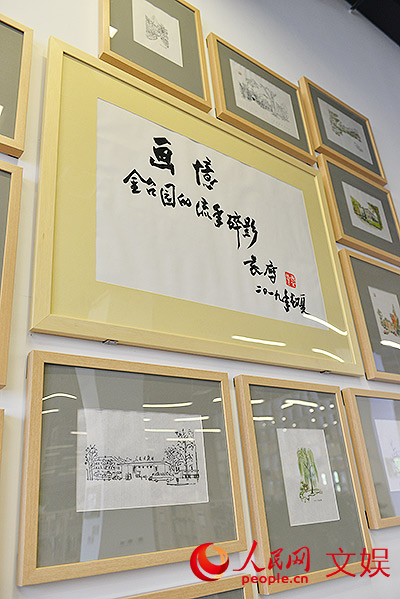 画 憶
金台园的流年碎影
二〇一九年初夏
人民网 文娱
people.cn